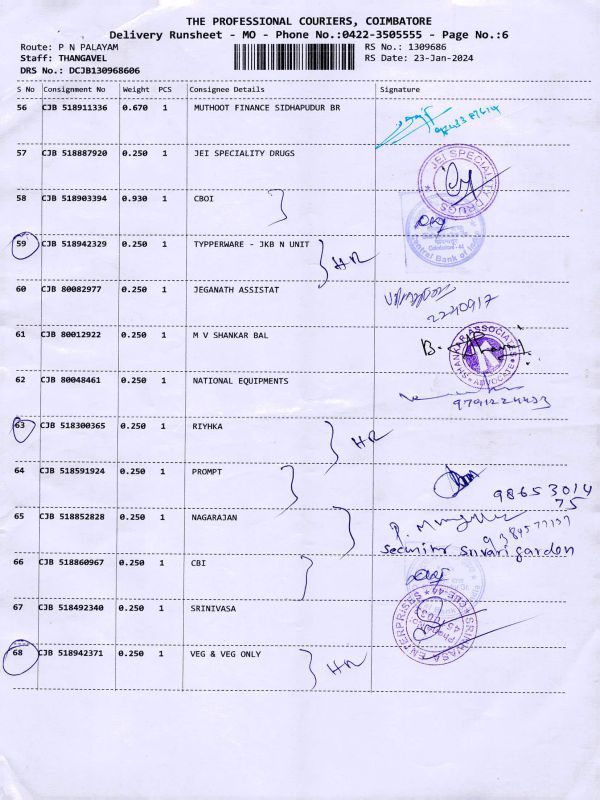 THE PROFESSIONAL COURIERS, COIMBATORE
Delivery Runsheet - MO - Phone No.:0422-3505555 - Page No.:6
Route: P N PALAYAM RS No.: 1309686
Staff: THANGAVEL RS Date: 23-Jan-2024
DRS No.: DCJB130968606
S No Consignment No Weight PCS Consignee Details Signature
56 CJB 518911336 0.670 1 MUTHOOT FINANCE SIDHAPUDUR BR
57 CJB 518887920 0.250 1 JEI SPECIALITY DRUGS
JEI SPECIALITY DRUGS
58 CJB 518903394 0.930 1 CBOI
Central Bank of India
59 CJB 518942329 0.250 1 TYPPERWARE - JKB N UNIT
HR
60 CJB 80082977 0.250 1 JEGANATH ASSISTAT
2240917
61 CJB 80012922 0.250 1 M V SHANKAR BAL
SHANKAR ASSOCIATES
ADVOCATE
62 CJB 80048461 0.250 1 NATIONAL EQUIPMENTS
9791224433
63 CJB 518300365 0.250 1 RIYHKA
HR
64 CJB 518591924 0.250 1 PROMPT
98653014
75
65 CJB 518852828 0.250 1 NAGARAJAN
garden
66 CJB 518860967 0.250 1 CBI
67 CJB 518492340 0.250 1 SRINIVASA
SRINIVASA ENTERPRISES
68 CJB 518942371 0.250 1 VEG & VEG ONLY
HR